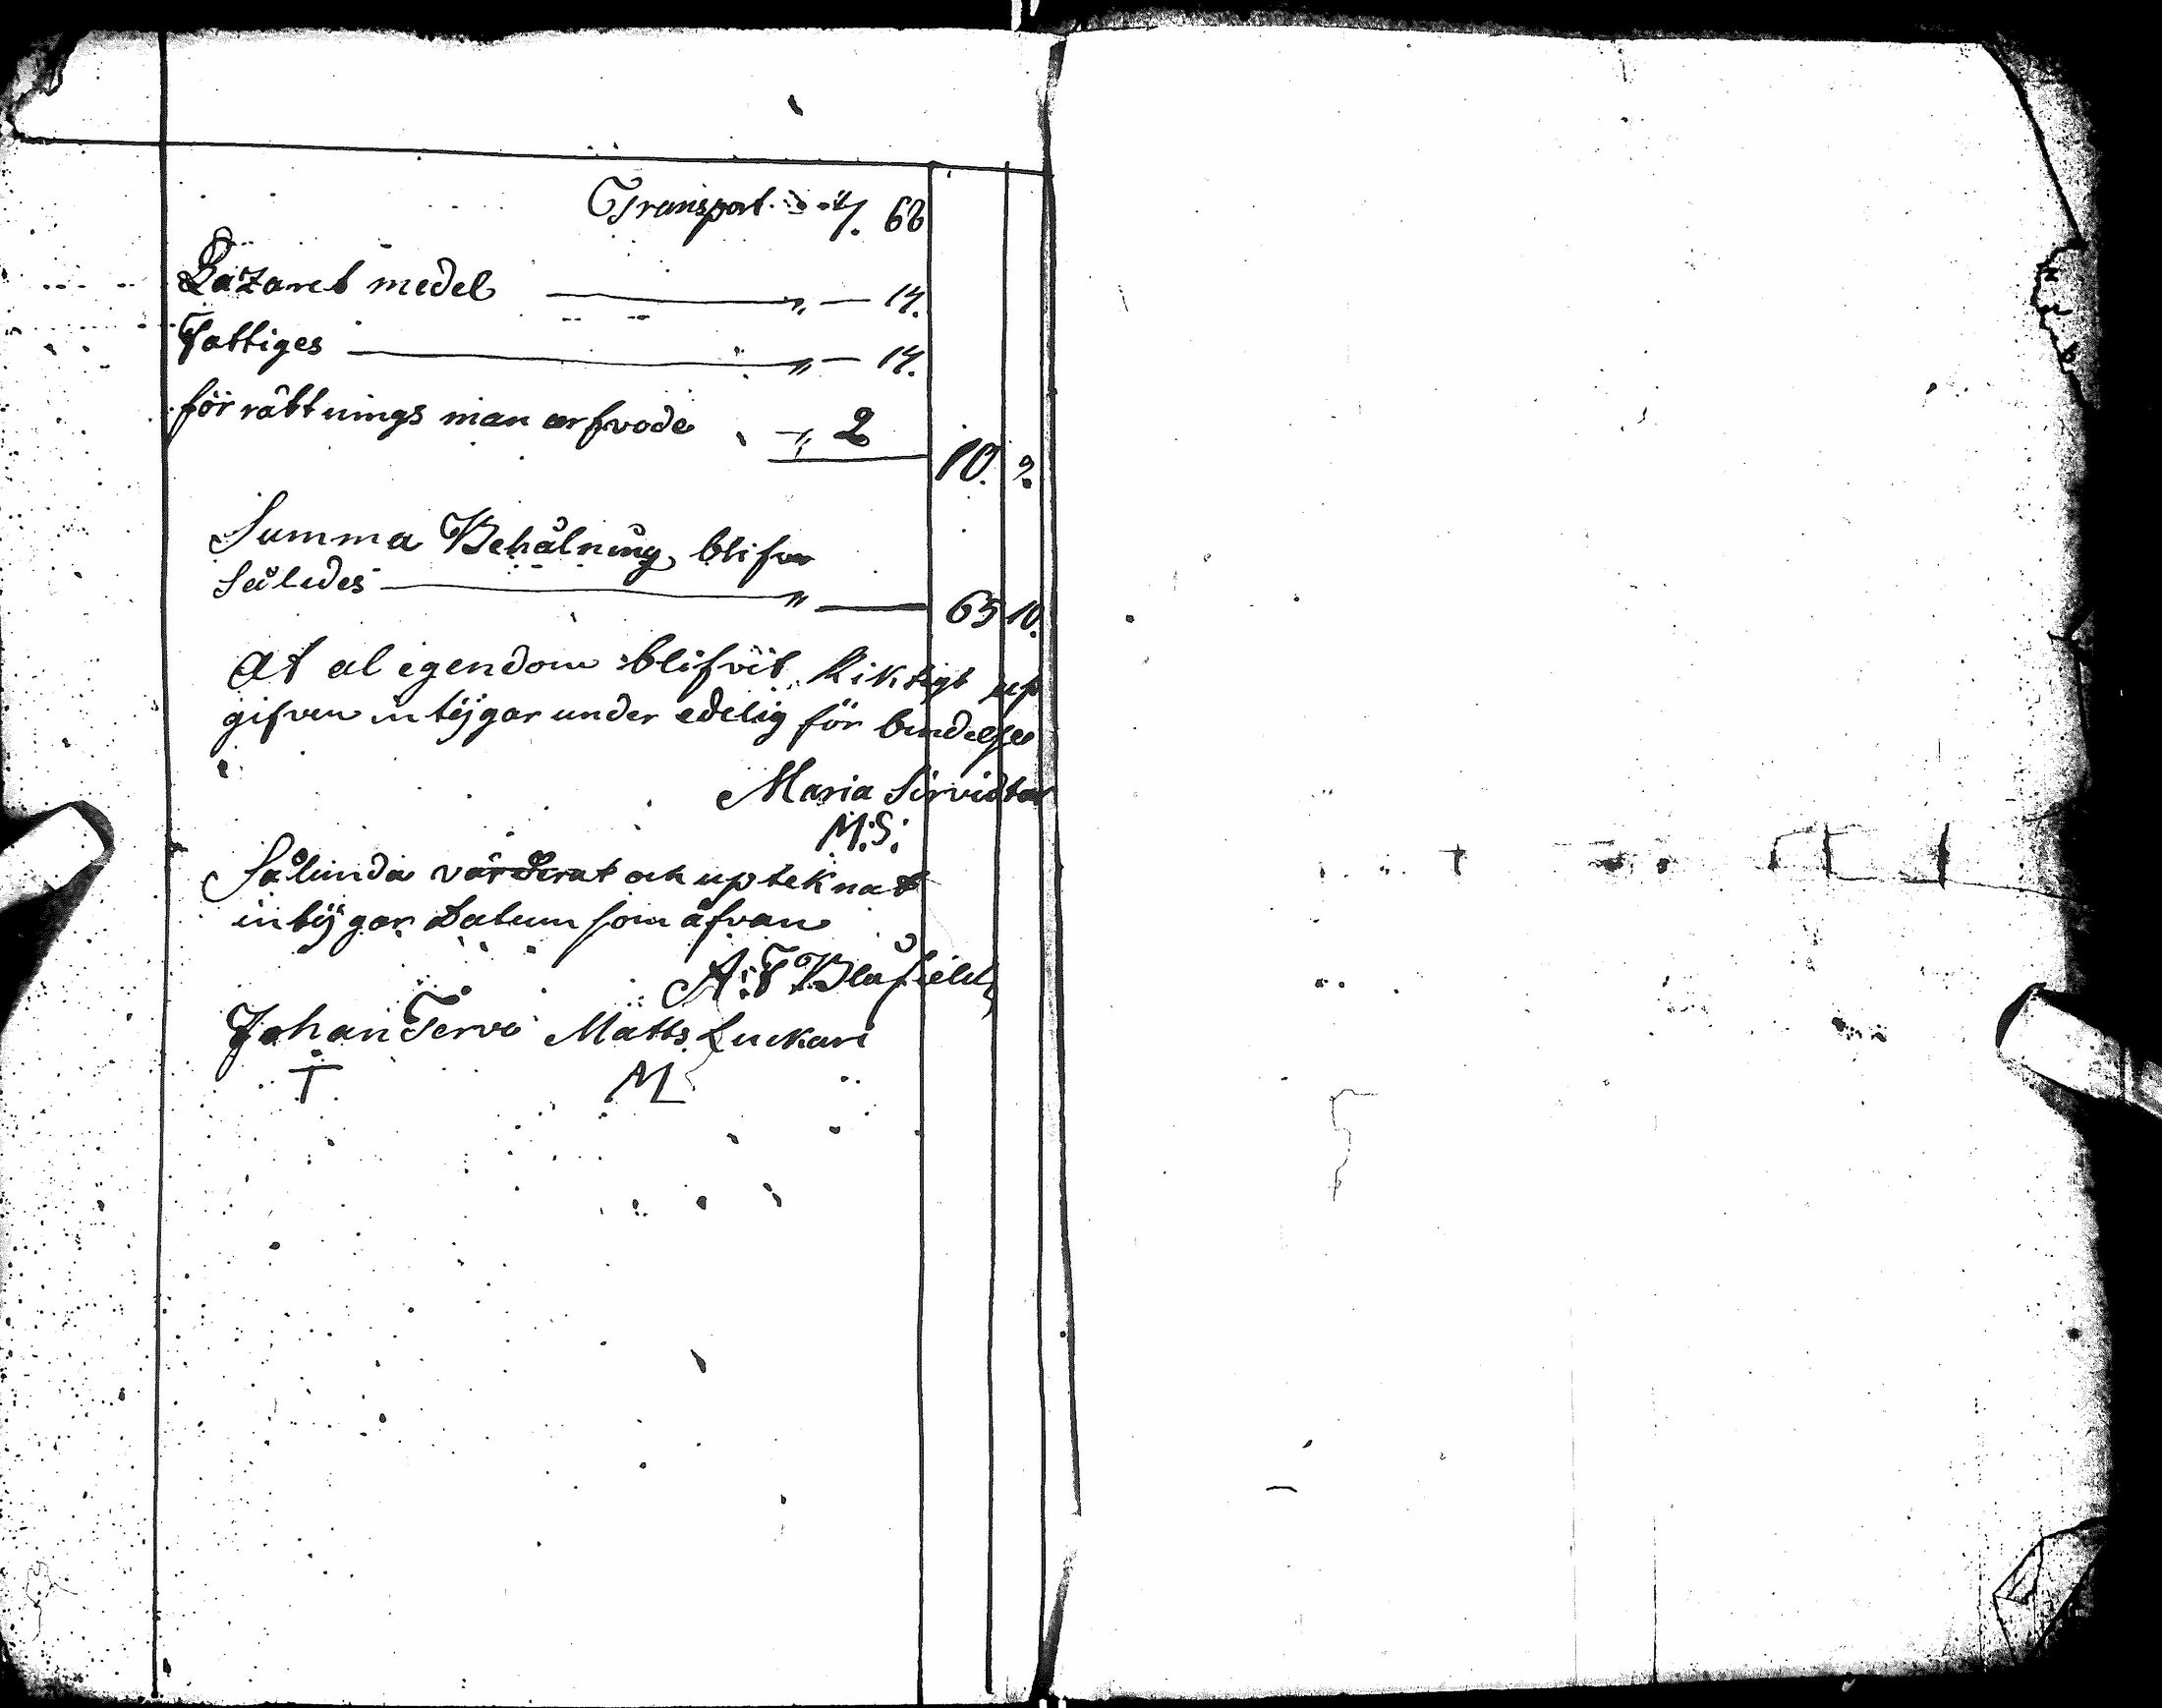 Transport. 7. 68
Lazaret medel — „ — 17.
Fattiges — „ — 17.
för rättnings man arfvode — „ 2
10. 2.
Summa Behålning blifva
Således — „ — 65 10.
At al egendom blifvit Riktigt up
gifven intÿgar under edelig för bindelse
Maria Sirvidtar
M:S:
Sålunda värderat och upteknat
intÿgar Datum som åfvan
A:F Blåfield
Johan Tervo Matts Luckari
T M